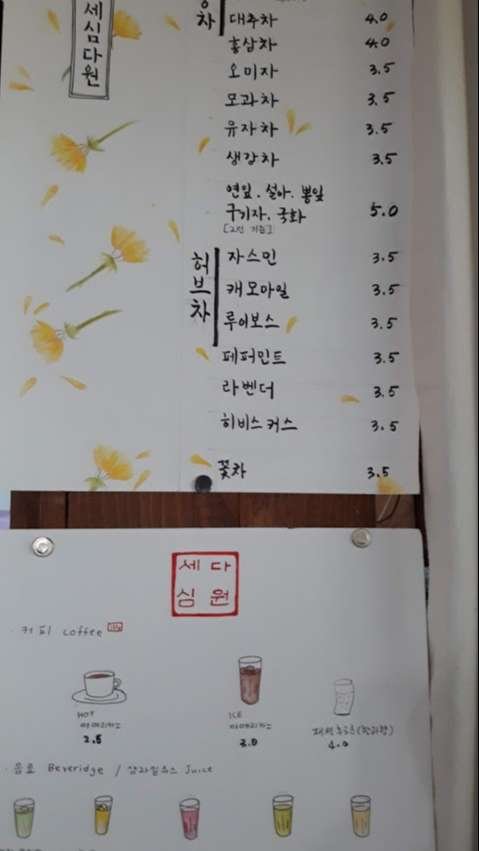 세심다원
차
대추차 4.0
홍삼차 4.0
오미자 3.5
모과차 3.5
유자차 3.5
생강차 3.5
연잎. 설아. 뽕잎
구기자. 국화 5.0
허브차
자스민 3.5
캐모마일 3.5
루이보스 3.5
페퍼민트 3.5
라벤더 3.5
히비스커스 3.5
꽃차 3.5
세 다
심 원
커피 coffee
HOT
아메리카노
2.5
ICE
아메리카노
3.0
4.0
음료 Beveridge / 생과일쥬스 Juice